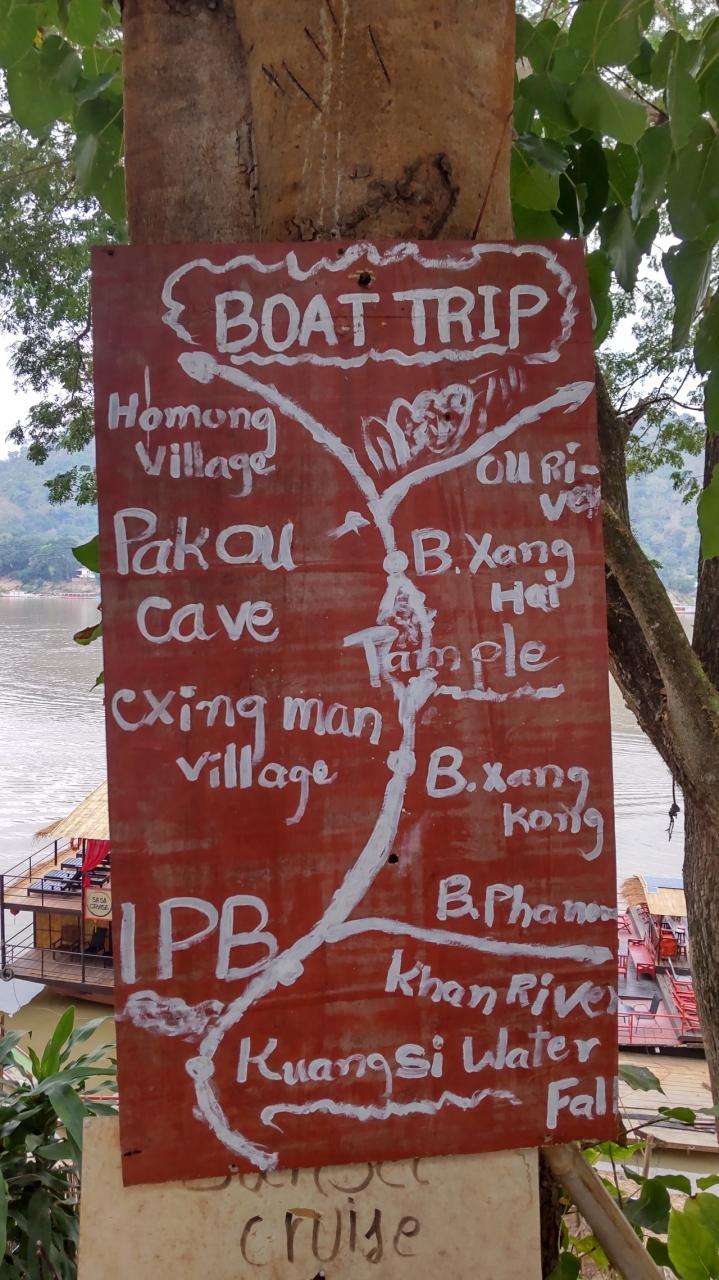 BOAT TRIP
Homong
Village
OU Ri-
ver
Pakou
Cave
B. Xang
Hai
Tample
cxing man
village
B. Xang
Kong
IPB
B. Phanom
Khan River
Kuangsi Water
Fall
SA SA
CRUISE
Sunset
cruise